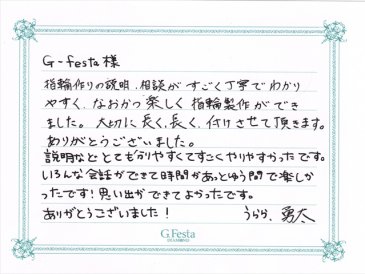 G-festa様
指輪作りの説明、相談がすごく丁寧でわかり
やすく、なおかつ楽しく指輪製作ができ
ました。大切に長く、長く、付けさせて頂きます。
ありがとうございました。
説明などとても分りやすくてすごくやりやすかったです。
いろんな会話ができて時間があっとゆう間で楽しか
ったです!思い出ができてよかったです。
ありがとうございました! うらら、勇太
G.Festa